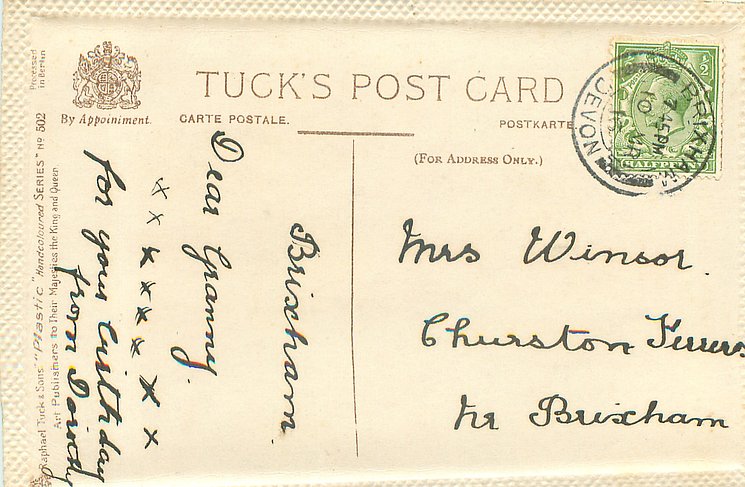 TUCK'S POST CARD
By Appointment.
CARTE POSTALE.
POSTKARTE
(FOR ADDRESS ONLY.)
Processed
in Berlin
Raphael Tuck & Sons' "Plastic" Handcoloured SERIES" No 502
Art Publishers to Their Majesties the King and Queen
½
HALFPENNY
BRIXHAM
7.45PM
10
DEVON
Brixham.
Dear Granny.
x x x x x x x x
for your birthday
from Dorothy
Mrs Winsor.
Churston Ferrers
Nr Brixham